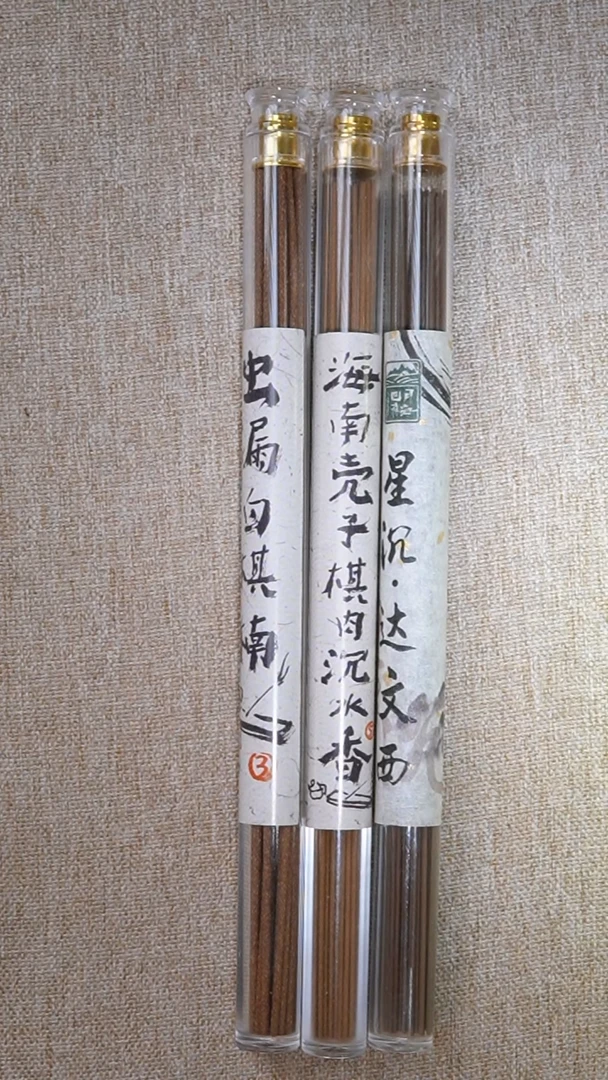 虫漏白棋楠
③
海南壳子棋肉沉水香
⑤
星沉·达文西